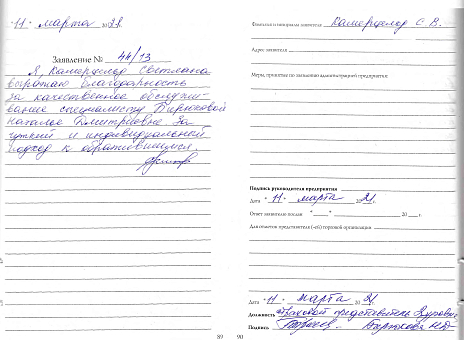 "11" марта 2021.
Заявление № 44/13
Я, Камерфельд Светлана
выражаю благодарность
за качественное обслужи-
вание специалисту Бирюковой
Наталье Дмитриевне. За
чуткий и индивидуальный
подход к обратившимся.
89
Фамилия и инициалы заявителя Камерфельд С. В.
Адрес заявителя
Меры, принятые по заявлению администрацией предприятия:
Подпись руководителя предприятия
Дата "11" марта 2021.
Ответ заявителю послан "___" 20 г.
Для отметки представителя (-ей) торговой организации
Дата "11" марта 2021
Должность представитель
Подпись Бирюкова Н.Д.
90